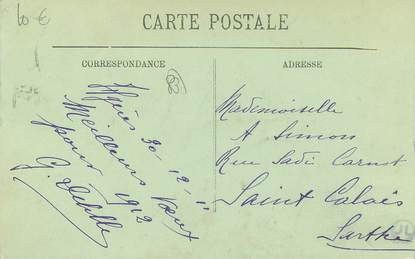 10 €
CARTE POSTALE
CORRESPONDANCE
ADRESSE
30-12-11
Meilleurs Vœux
pour 1912
G.
Mademoiselle
A Simon
Rue Sadi Carnot
Saint Calais
Sarthe